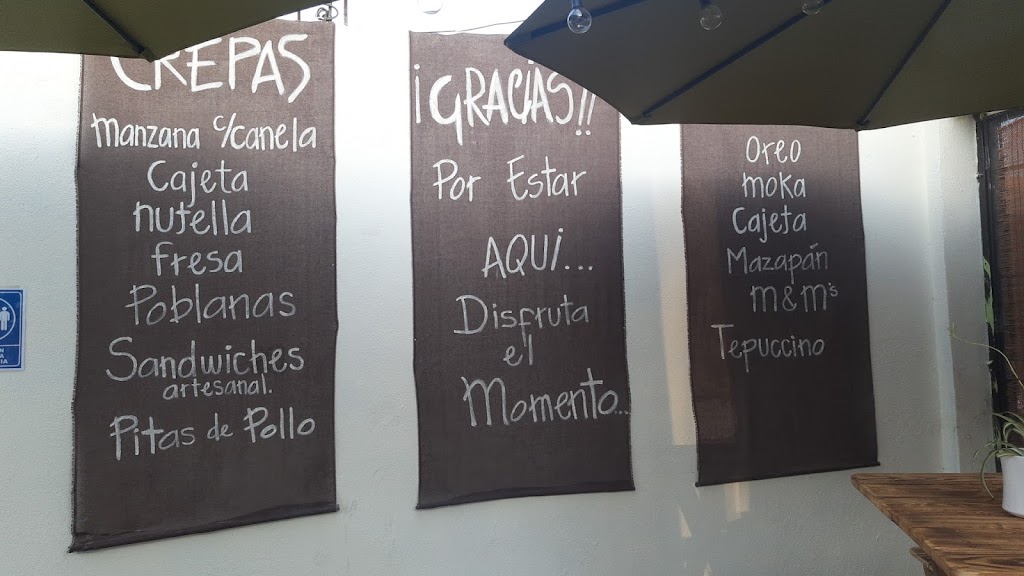 CREPAS
Manzana c/canela
Cajeta
nutella
fresa
Poblanas
Sandwiches
artesanal.
Pitas de Pollo
¡GRACIAS!!
Por Estar
AQUí...
Disfruta
el
Momento...
Oreo
moka
Cajeta
Mazapán
m&m's
Tepuccino